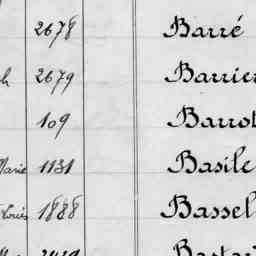 2678 Barré
2679 Barrier
109 Barrot
Marie 1131 Basile
Louis 1888 Bassel